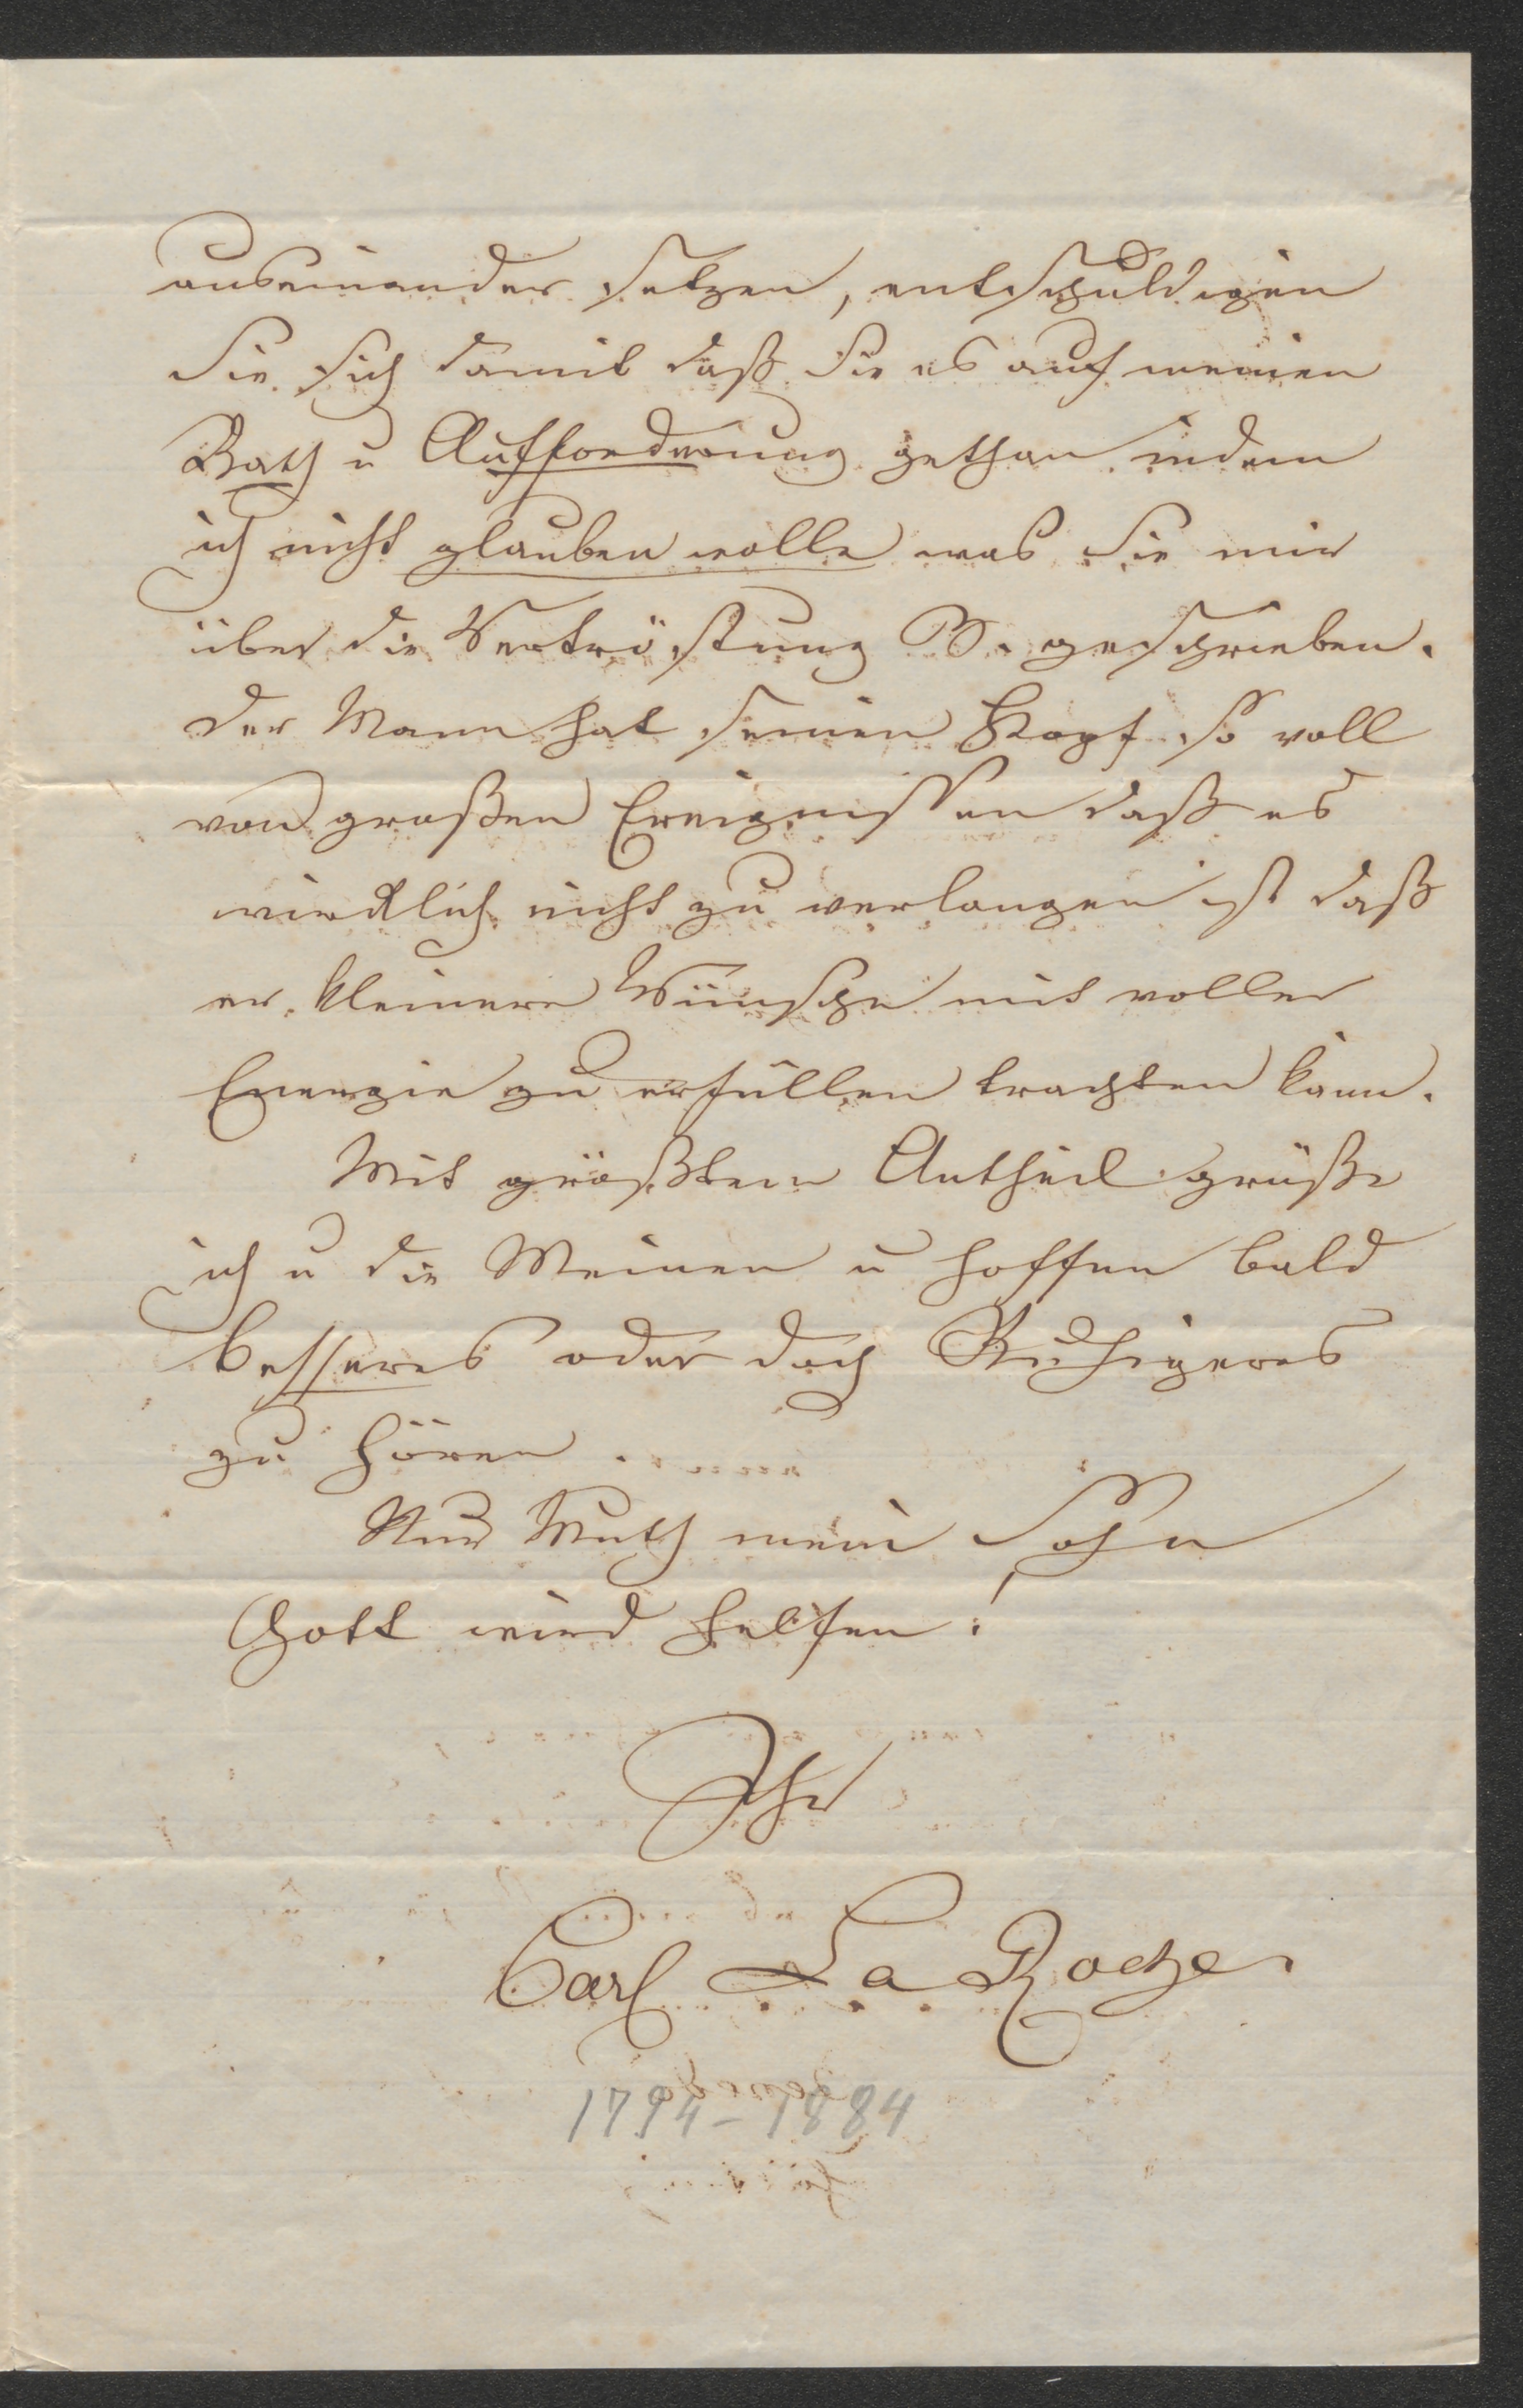 auseinander setzen, entschuldigen
Sie sich damit daß Sie es auf meinen
Rath u Aufforderung gethan indem
ich nicht glauben wolle was Sie mir
über die Vertröstung B. geschrieben.
Der Mann hat seinen Kopf so voll
von großen Ereignissen daß es
wirklich nicht zu verlangen ist daß
er kleinere Wünsche mit voller
Energie zu erfüllen trachten kann.
Mit größtem Antheil grüße
ich u die Meinen u hoffen bald
besseres oder doch Ruhigeres
zu hören.
Nur Muth mein Sohn
Gott wird helfen!
Ihr
Carl La Roche
1794-1884